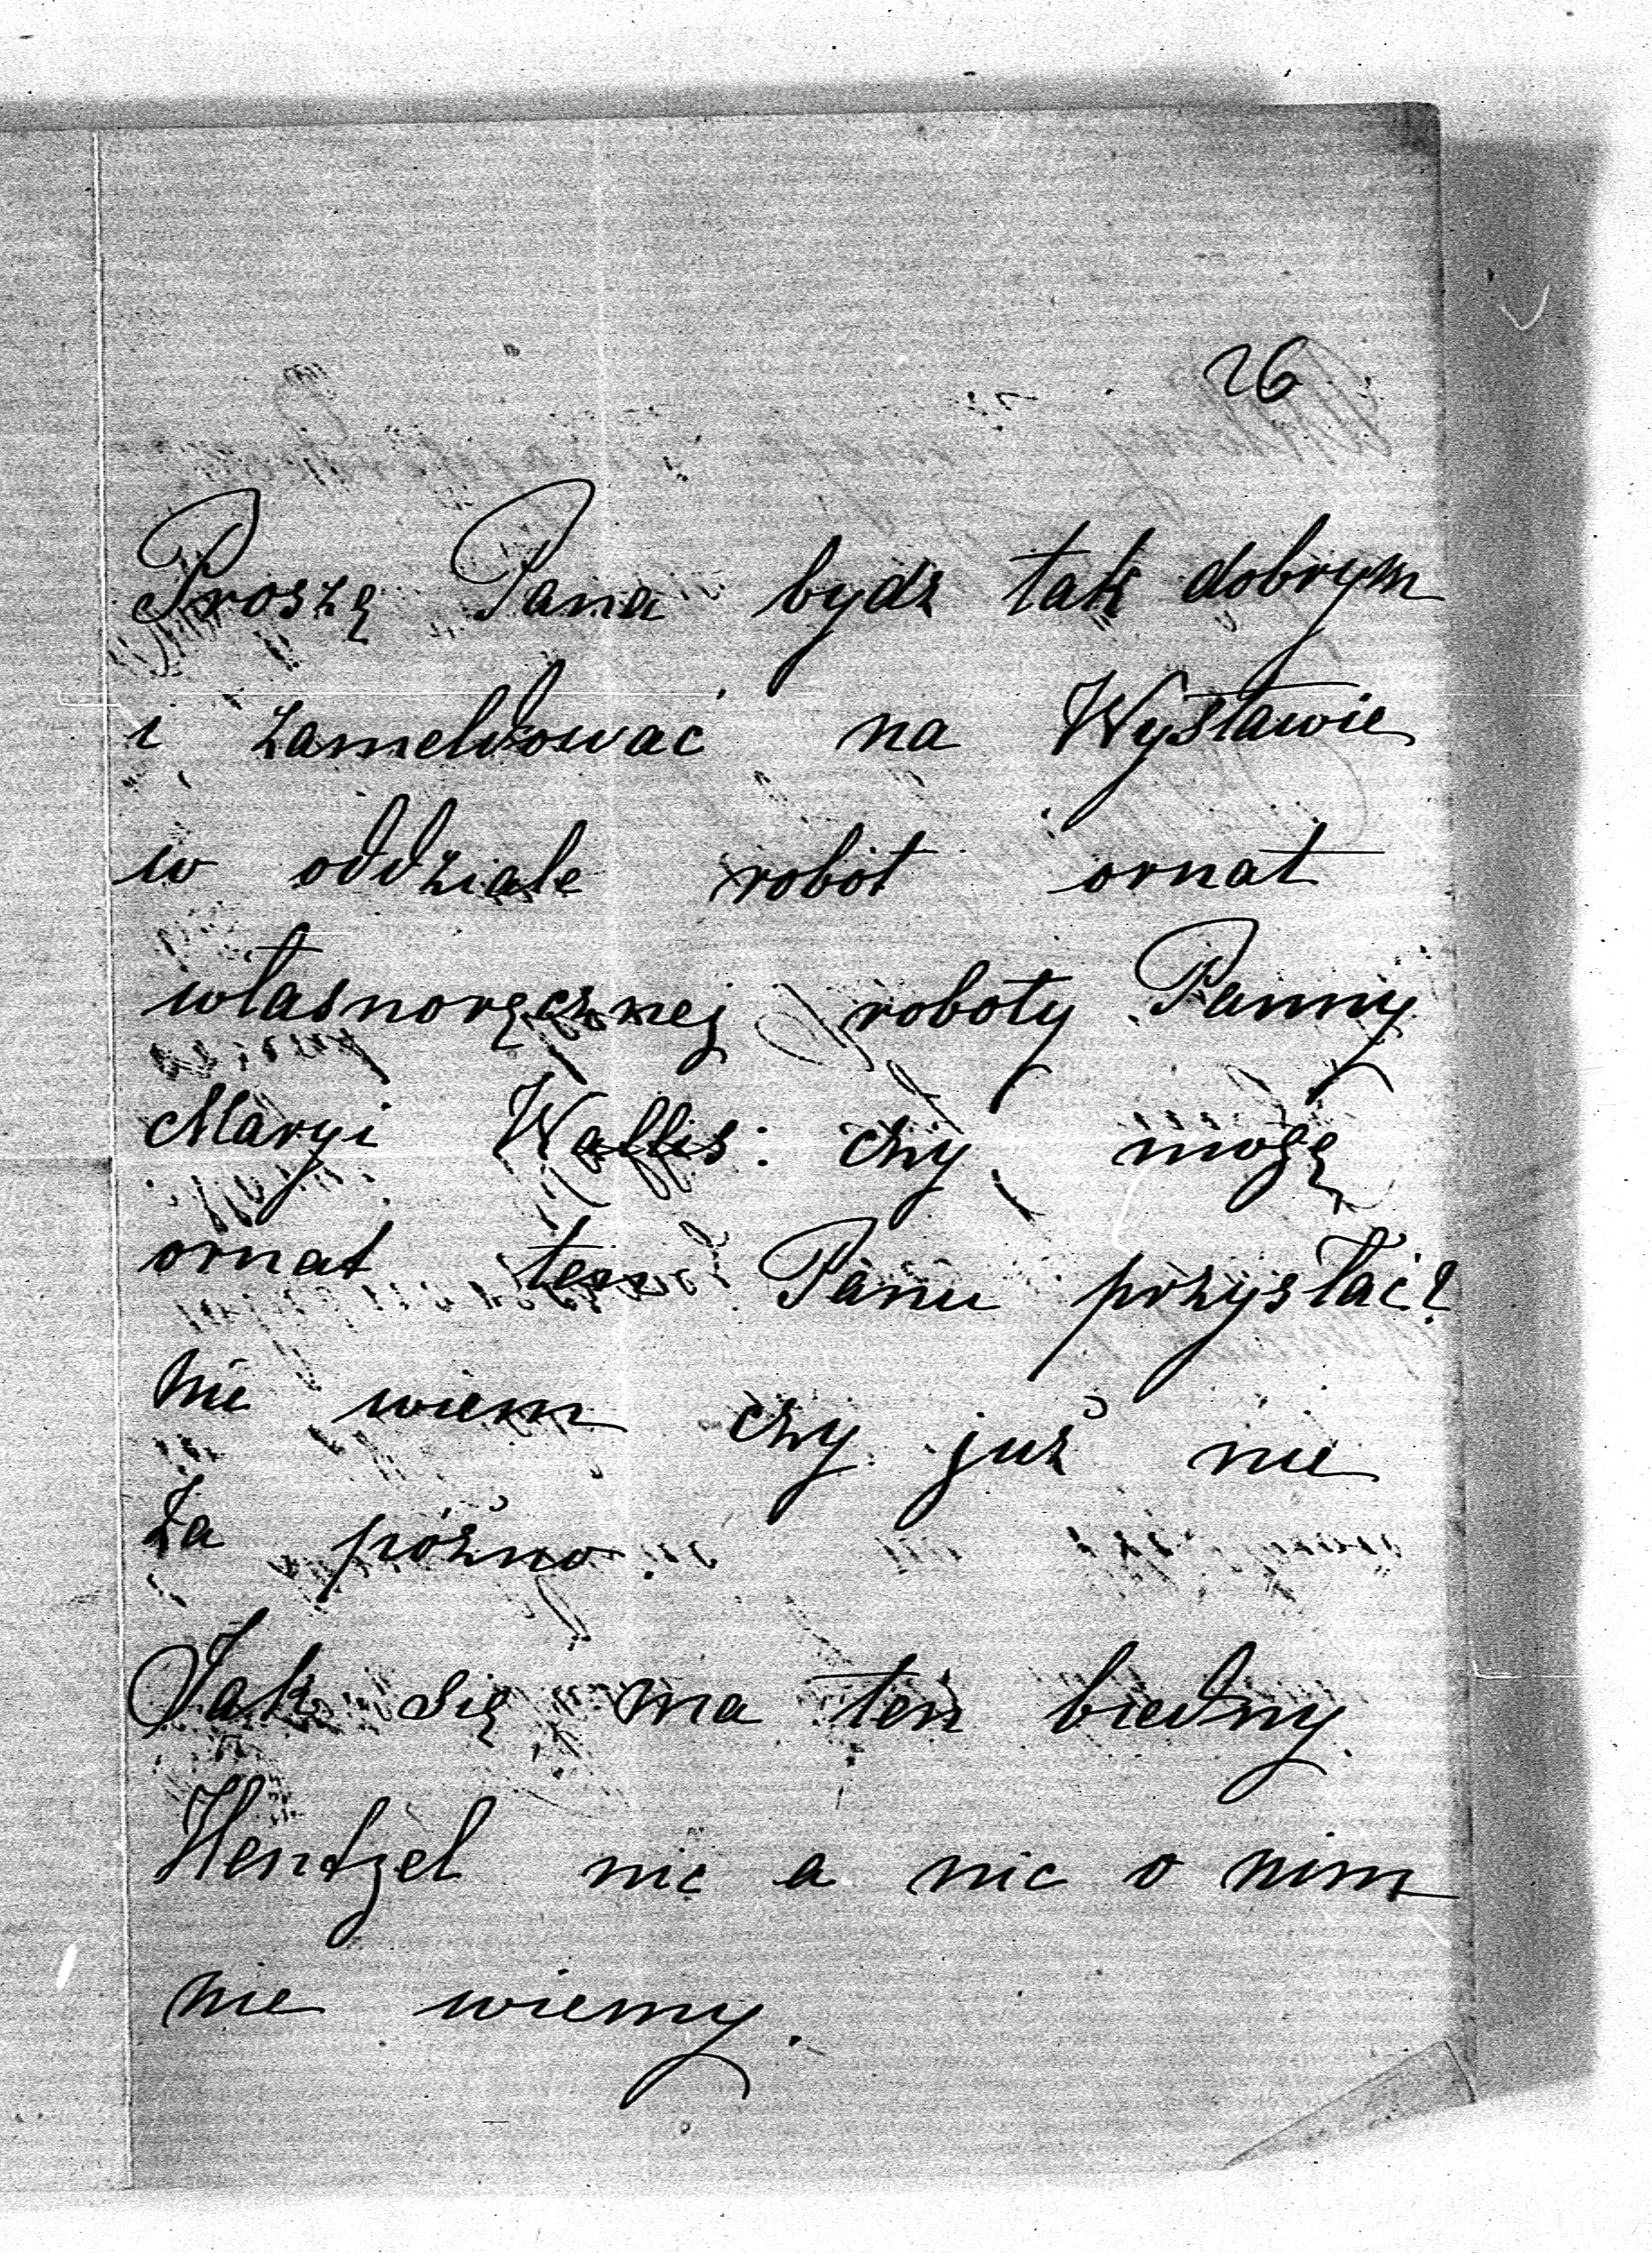 26
Proszę Pana bydz tak dobrym
i zameldować na Wystawie
w oddziale robót ornat
własnoręcznej roboty Panny
Maryi Wallis: czy mogę
ornat ten Panu przysłać?
nie wiem czy już nie
za pózno.
Jak się ma ten biedny
Hentzel nic a nic o nim
nie wiemy.